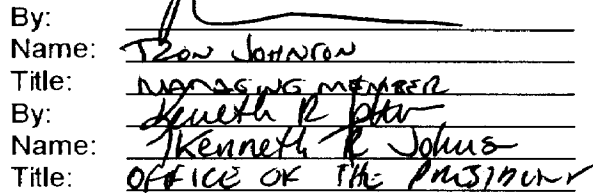 By:
Name: TRON JOHNSON
Title: MANAGING MEMBER
By: Kenneth R
Name: Kenneth R Johns
Title: OFFICE OF THE PRESIDENT